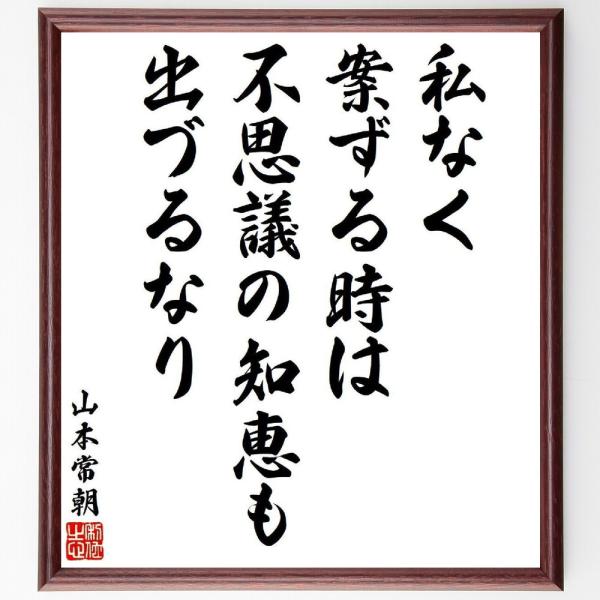 私なく
案ずる時は
不思議の知恵も
出づるなり
山本常朝